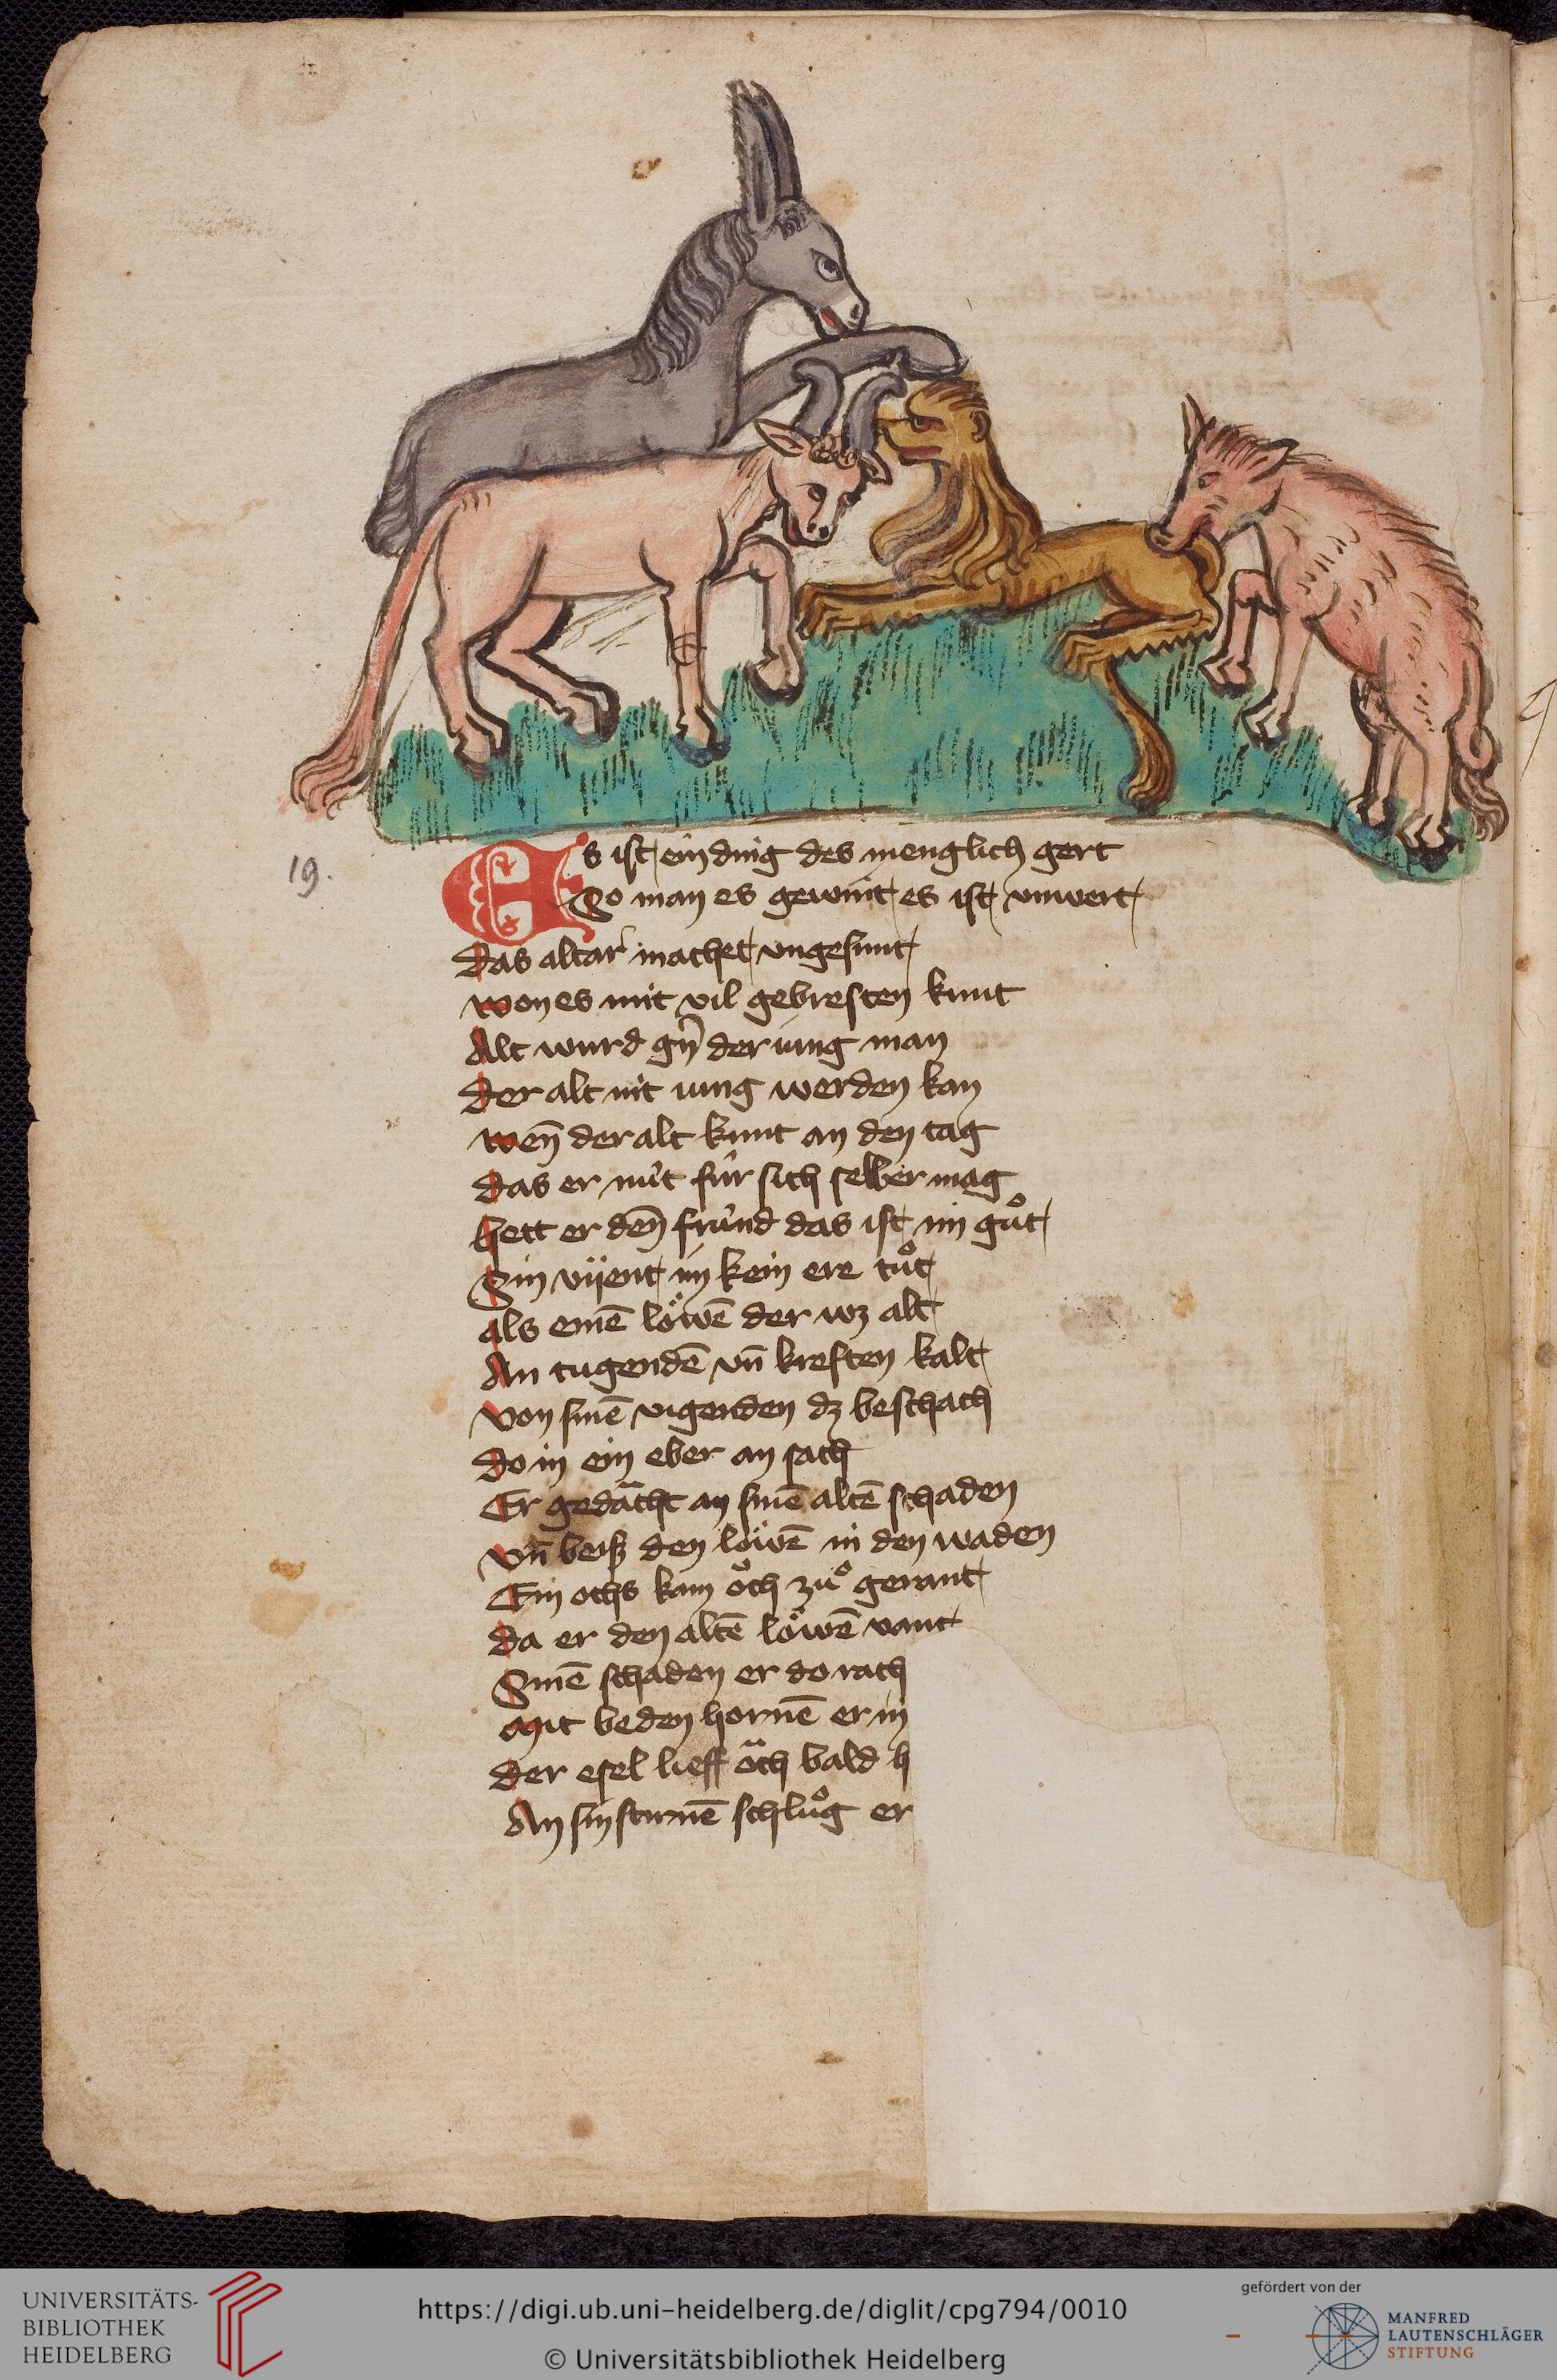 19.
Es ist ein ding des menglich gert
So man es gewint es ist vnwert
Das altar machet vngesunt
won es mit vil gebresten kunt
Alt wurd gn̄ der iung man
Der alt nit iung werden kan
wen̄ der alt kunt an den tag
Das er nut für sich selber mag
hett er den̄ fründ das ist im gůt
Sin vijent im kein ere tůt
als einē löwē der wz alt
An tugendē vn̄ kreften kalt
Von sinē vigenden dz beschach
Do in ein eber an sach
Er gedächt an sinē altē schaden
vn̄ beiß den löwē in den waden
Ein ochs kam och zuͦ gerant
da er den altē löwē vant
Sinē schaden er do rach
Mit beden hornē er in
Der esel lieff och bald h
An sin stirnē schlůg er
UNIVERSITÄTS-
BIBLIOTHEK
HEIDELBERG
https://digi.ub.uni-heidelberg.de/diglit/cpg794/0010
© Universitätsbibliothek Heidelberg
gefördert von der
MANFRED
LAUTENSCHLÄGER
STIFTUNG